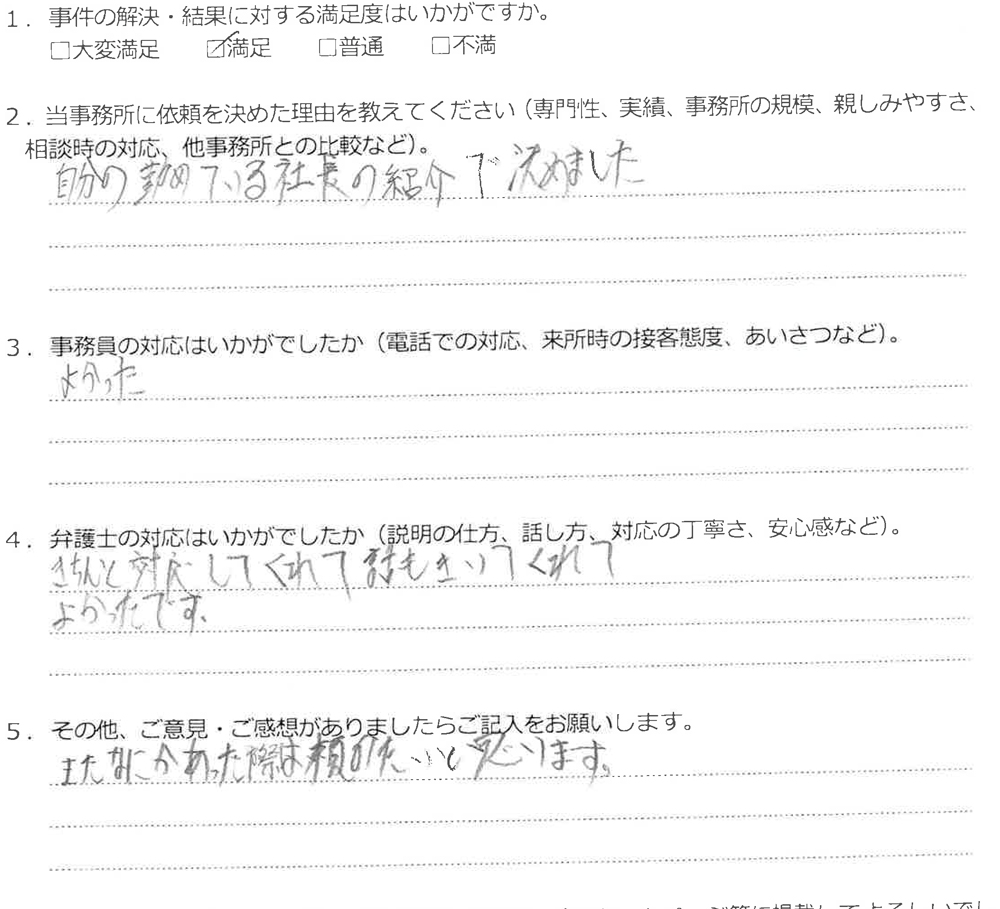 1．事件の解決・結果に対する満足度はいかがですか。
□大変満足　☑満足　□普通　□不満
2．当事務所に依頼を決めた理由を教えてください（専門性、実績、事務所の規模、親しみやすさ、
相談時の対応、他事務所との比較など）。
自分の勤めている社長の紹介で決めました
3．事務員の対応はいかがでしたか（電話での対応、来所時の接客態度、あいさつなど）。
よかった
4．弁護士の対応はいかがでしたか（説明の仕方、話し方、対応の丁寧さ、安心感など）。
きちんと対応してくれて話もきいてくれて
よかったです。
5．その他、ご意見・ご感想がありましたらご記入をお願いします。
またなにかあった際は頼みたいと思います。